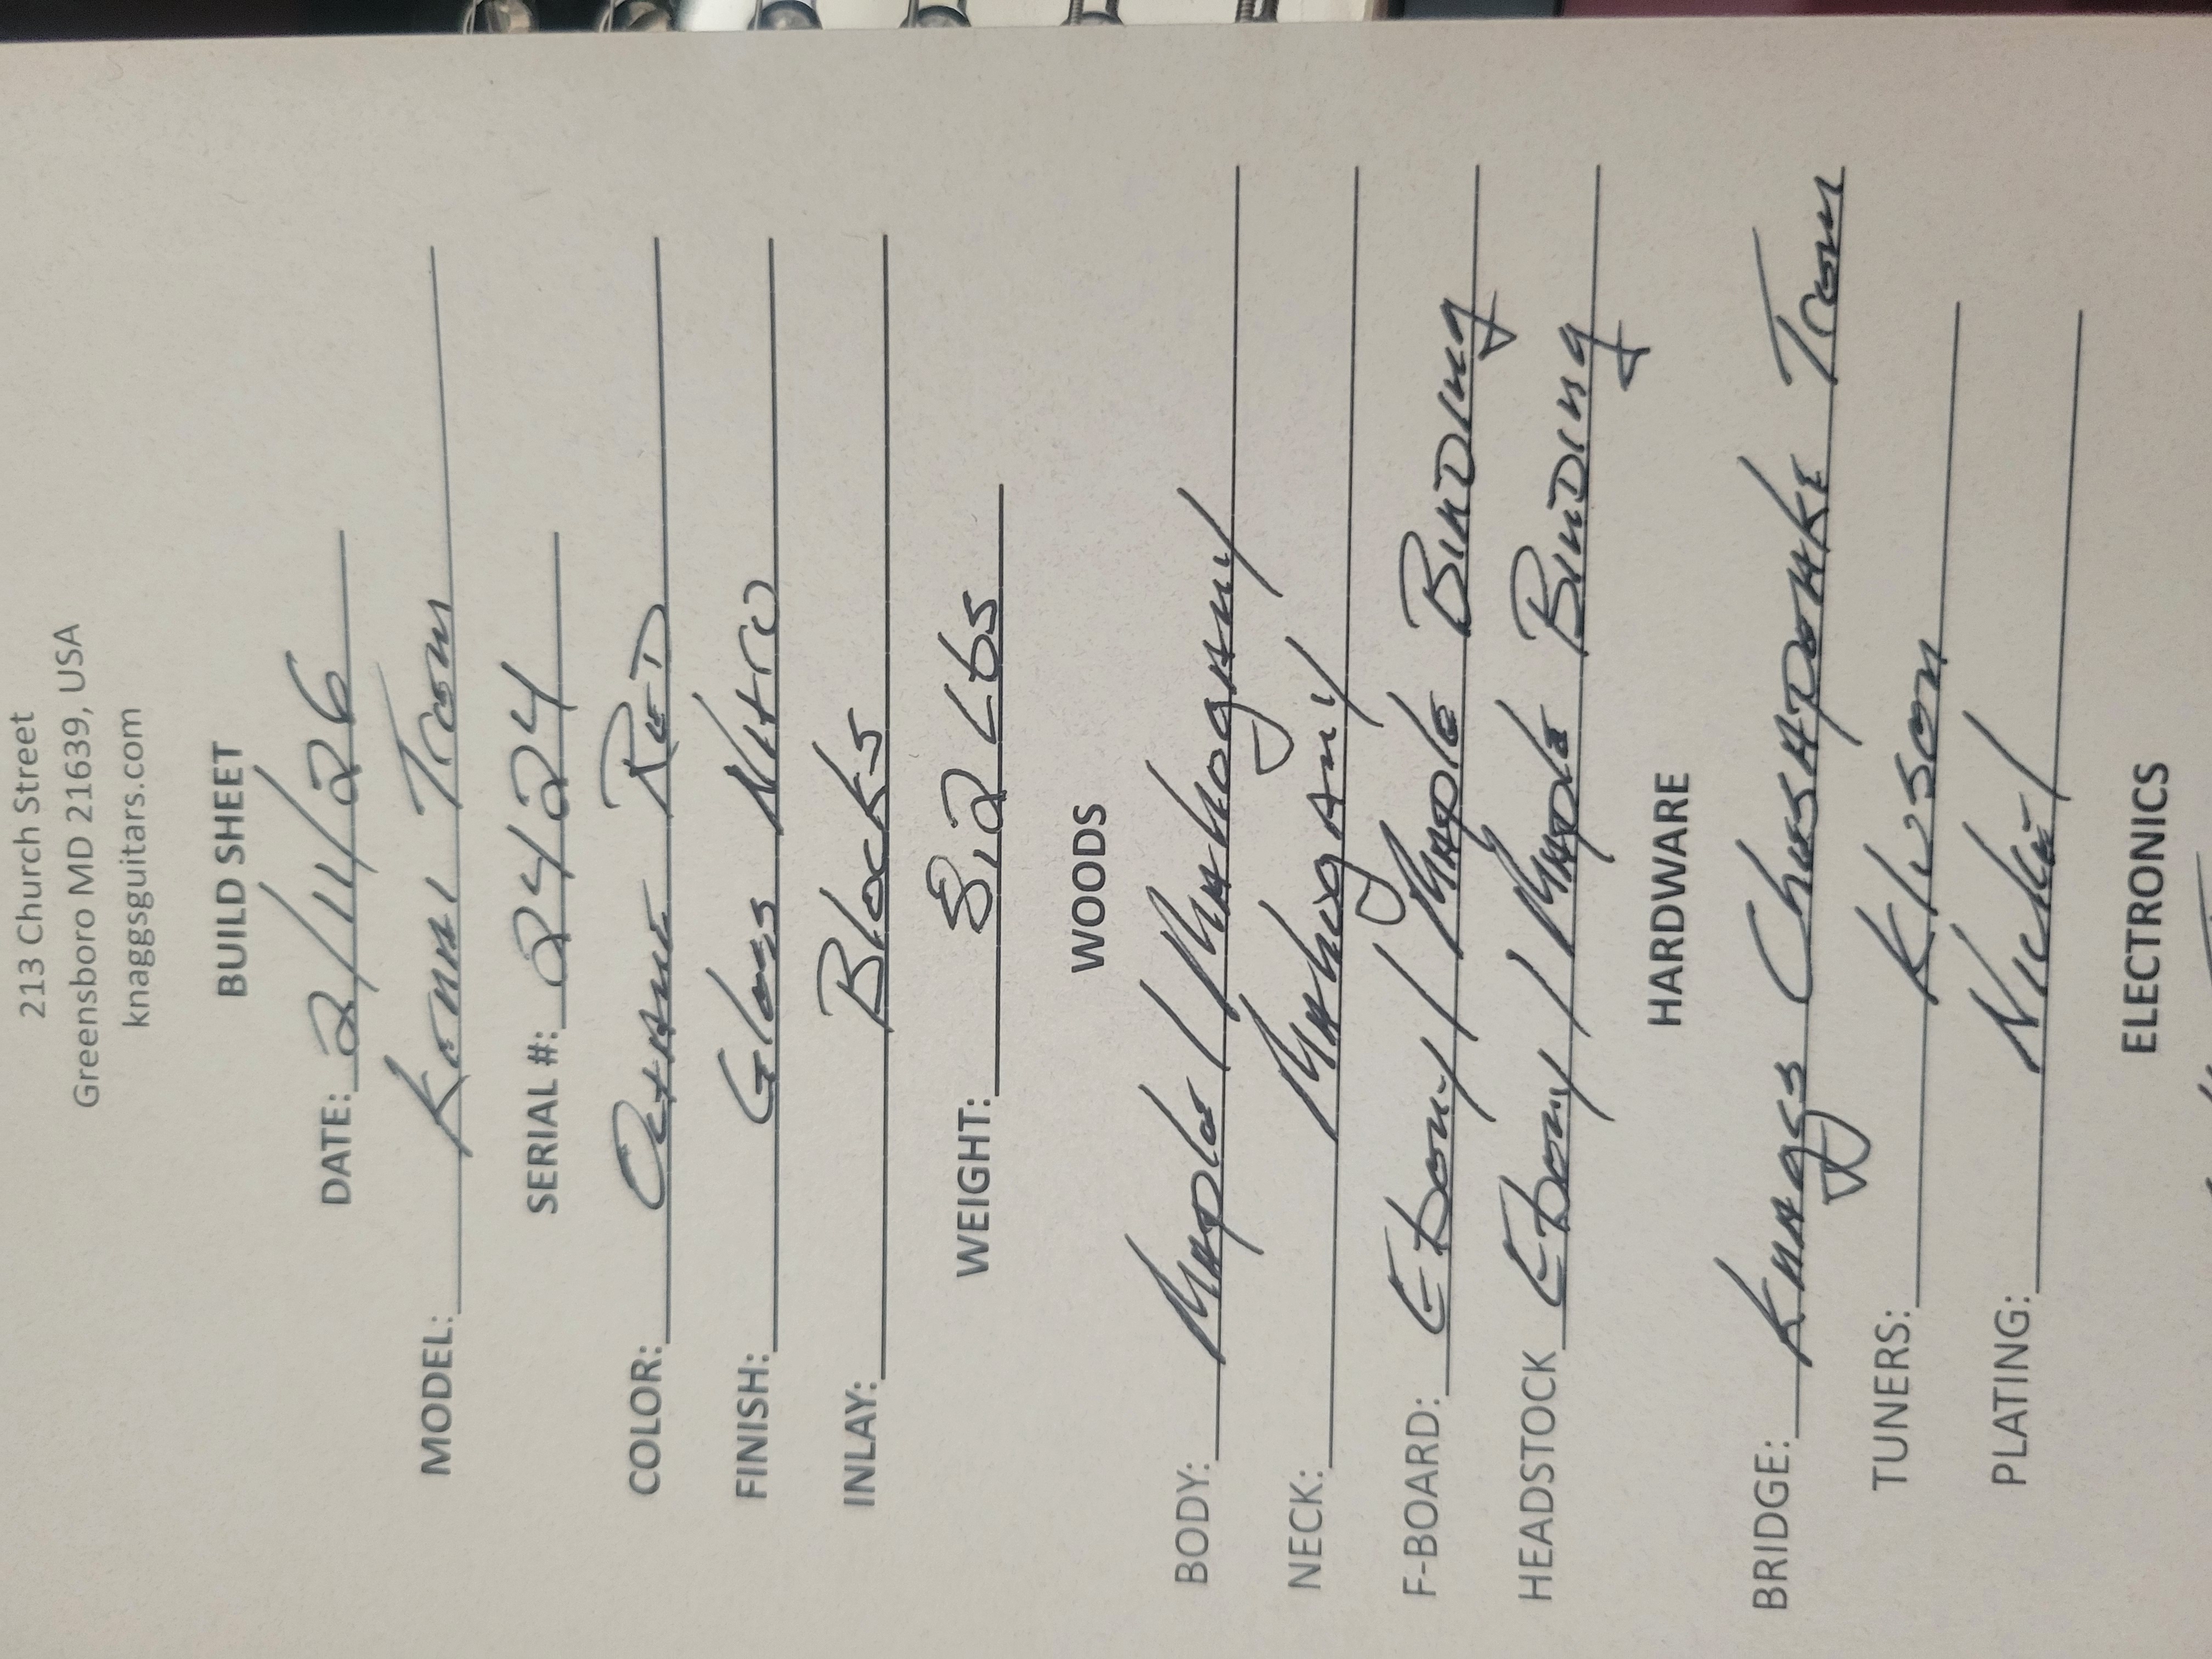 213 Church Street
Greensboro MD 21639, USA
knaggsguitars.com
BUILD SHEET
DATE: 2/11/26
MODEL: Kenai Trem
SERIAL #: 2424
COLOR: Octane Red
FINISH: Gloss Nitro
INLAY: Blocks
WEIGHT: 8.2 Lbs
WOODS
BODY: Maple / Mahogany
NECK: Mahogany
F-BOARD: Ebony / Maple Binding
HEADSTOCK Ebony / Maple Binding
HARDWARE
BRIDGE: Knaggs Chesapeake Trem
TUNERS: Kluson
PLATING: Nickel
ELECTRONICS